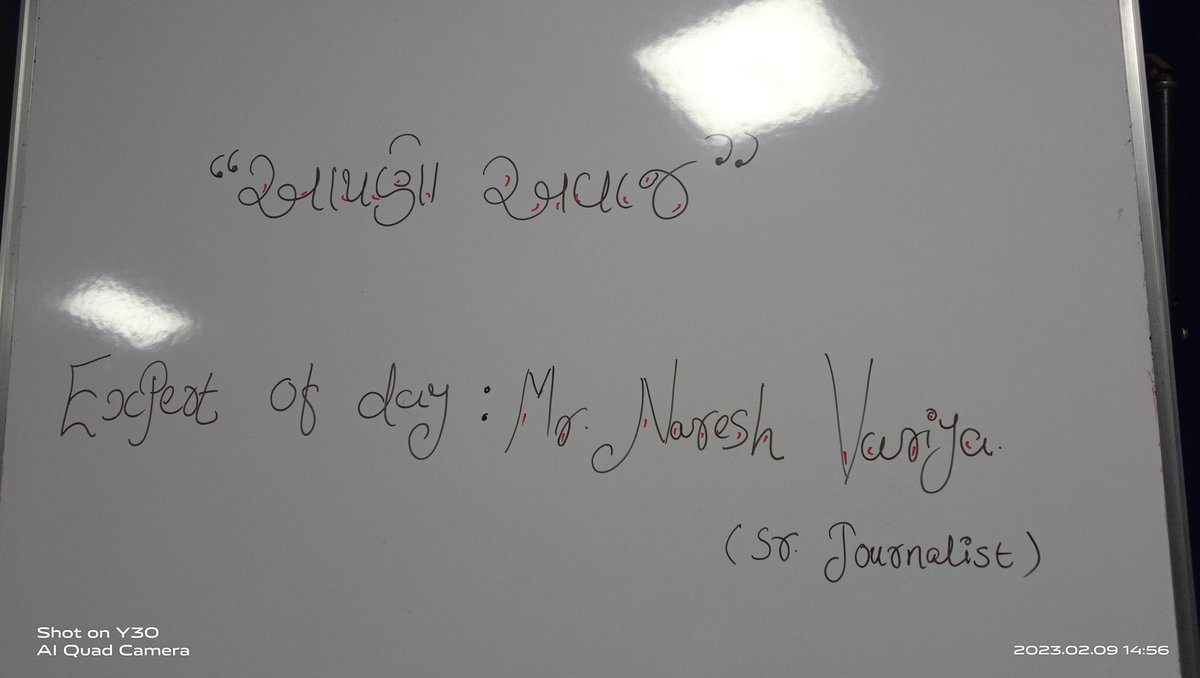 “આપણો અવાજ”
Expert of day : Mr. Naresh Variya.
(Sr. Journalist)
Shot on Y30
AI Quad Camera
2023.02.09 14:56